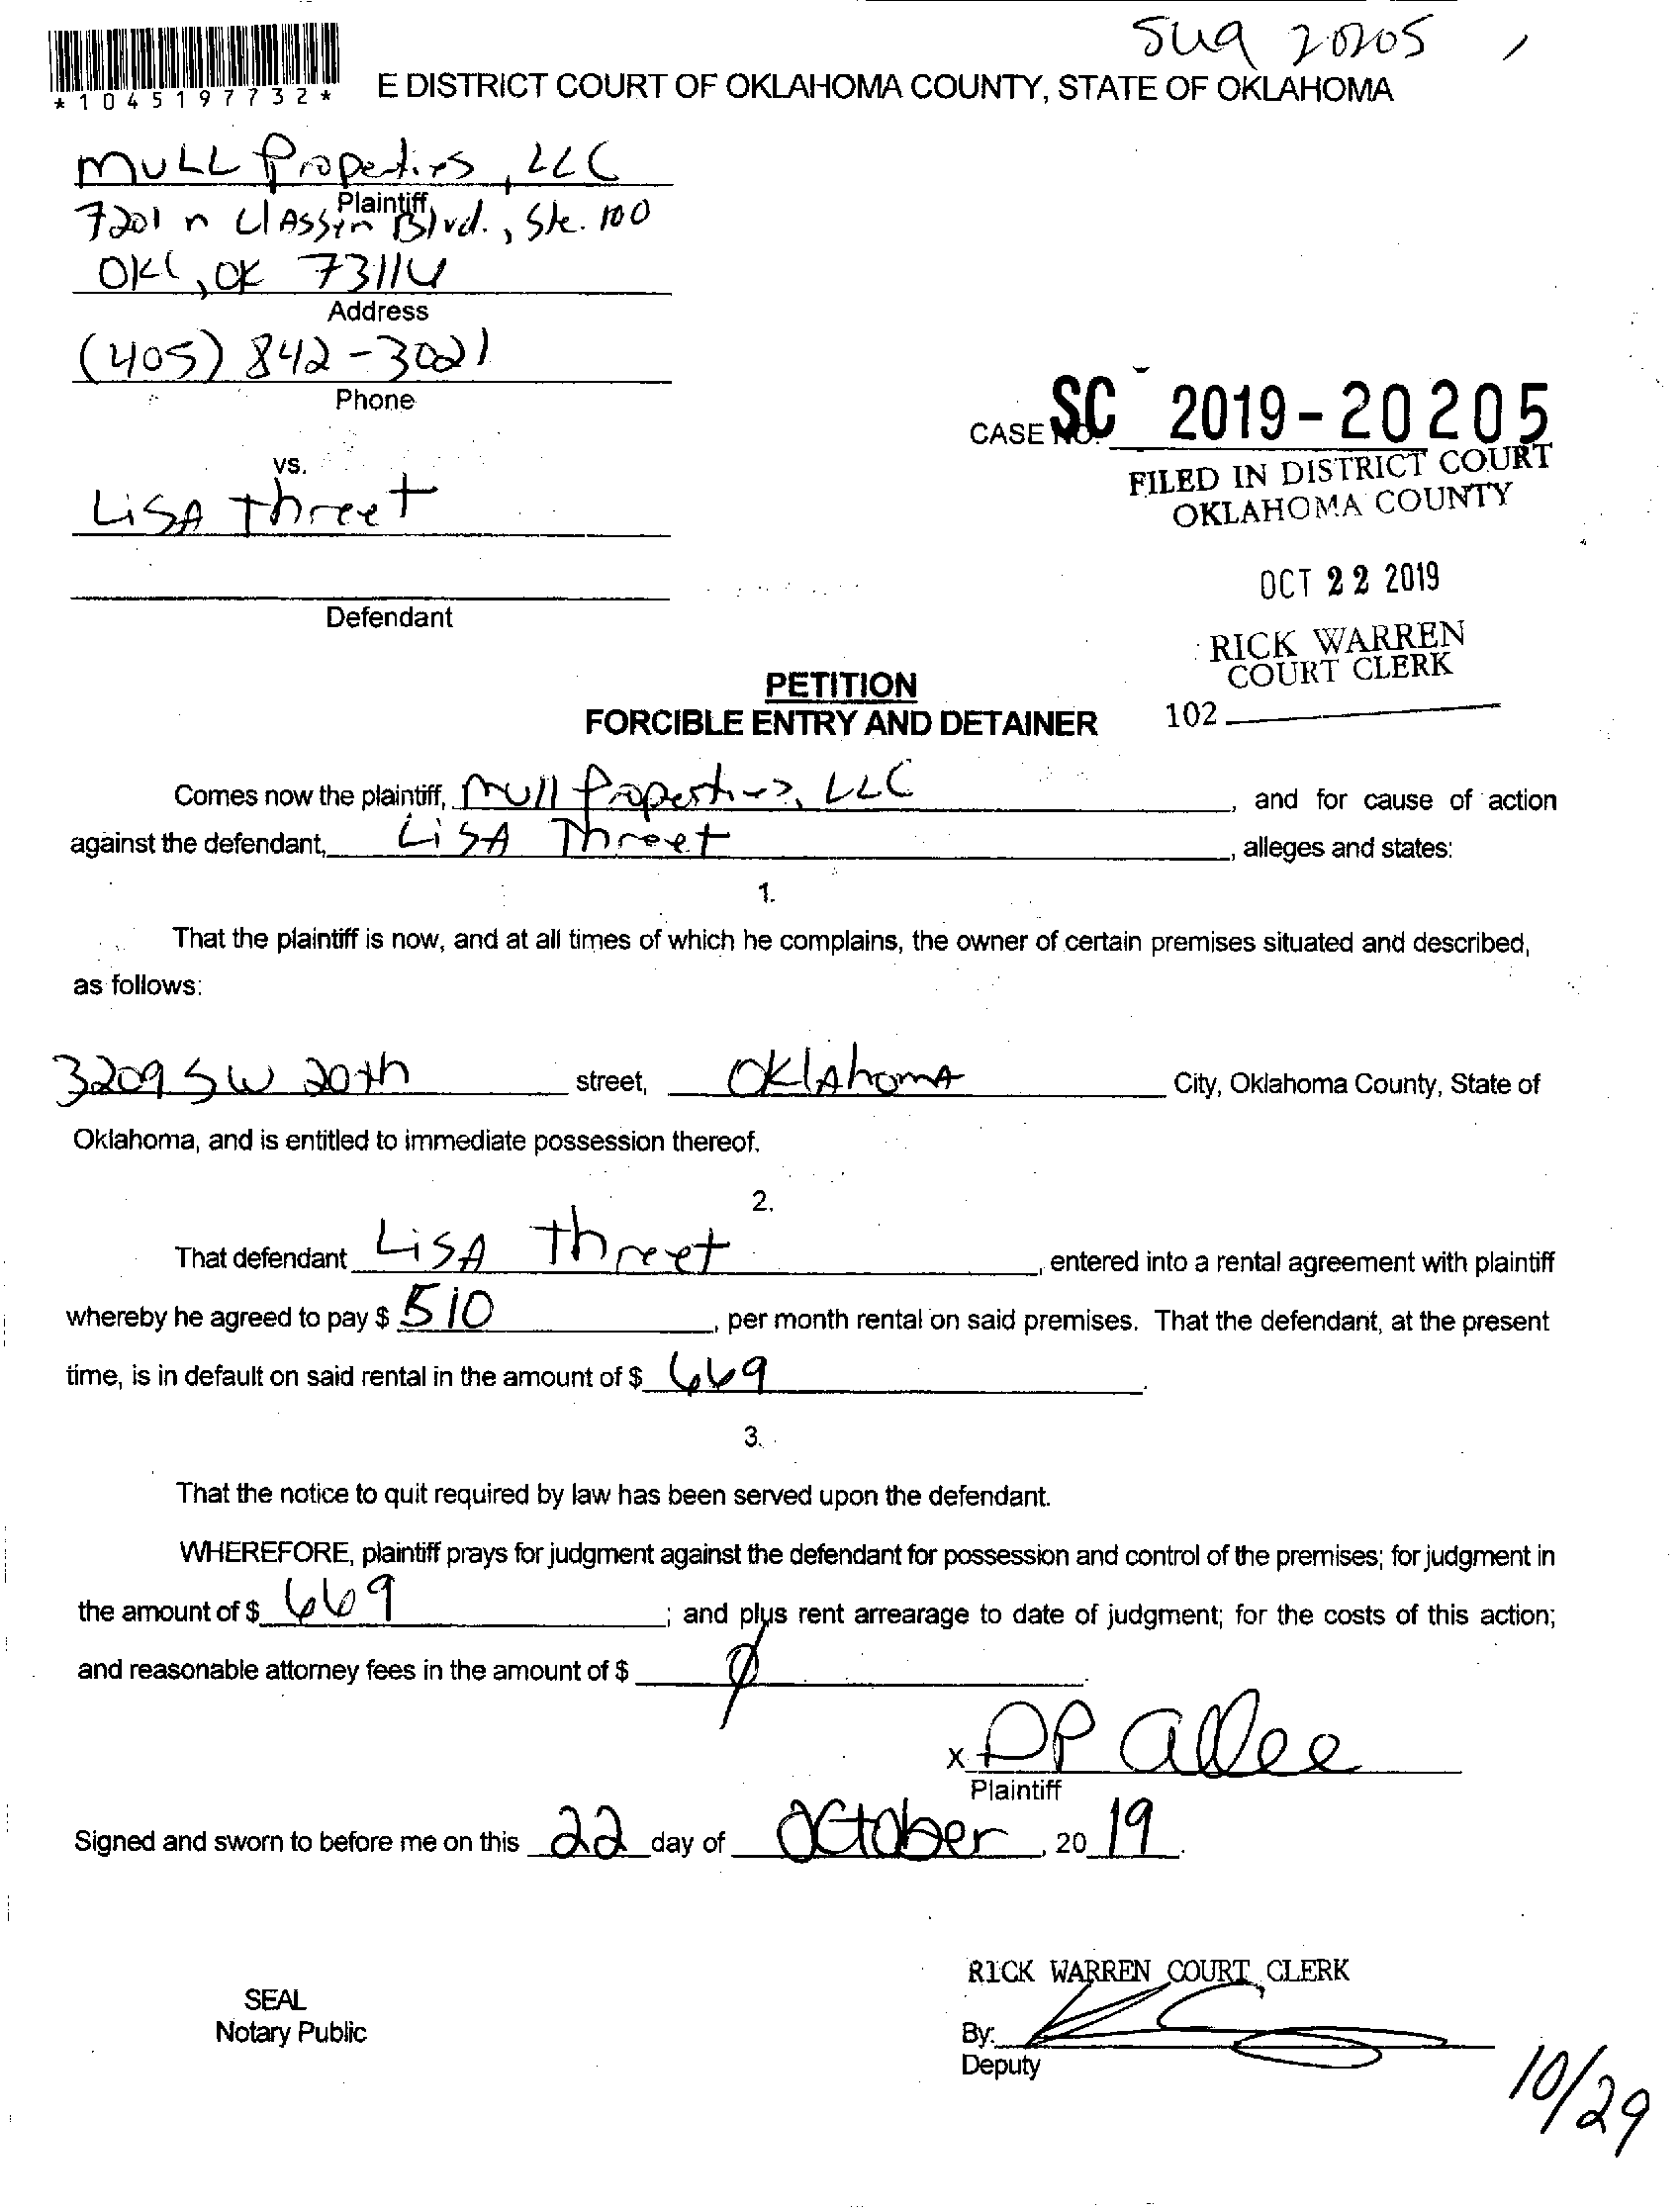 sug 20205
*1045197732*
E DISTRICT COURT OF OKLAHOMA COUNTY, STATE OF OKLAHOMA
MULL Properties, LLC
Plaintiff
7201 n Classen Blvd., Ste. 100
OKC, OK 73116
Address
(405) 842-3021
Phone
CASE NO. SC 2019-20205
vs.
FILED IN DISTRICT COURT
OKLAHOMA COUNTY
LiSA Threet
OCT 22 2019
Defendant
RICK WARREN
COURT CLERK
PETITION
102
FORCIBLE ENTRY AND DETAINER
Comes now the plaintiff, Mull Properties, LLC, and for cause of action
against the defendant, LiSA Threet, alleges and states:
1.
That the plaintiff is now, and at all times of which he complains, the owner of certain premises situated and described,
as follows:
3209 SW 20th street, OklAhomA City, Oklahoma County, State of
Oklahoma, and is entitled to immediate possession thereof.
2.
That defendant LiSA Threet, entered into a rental agreement with plaintiff
whereby he agreed to pay $ 510, per month rental on said premises. That the defendant, at the present
time, is in default on said rental in the amount of $ 669.
3.
That the notice to quit required by law has been served upon the defendant.
WHEREFORE, plaintiff prays for judgment against the defendant for possession and control of the premises; for judgment in
the amount of $ 669; and plus rent arrearage to date of judgment; for the costs of this action;
and reasonable attorney fees in the amount of $ Ø.
X DP Allee
Plaintiff
Signed and sworn to before me on this 22 day of October, 20 19.
RICK WARREN COURT CLERK
SEAL
Notary Public
By:
Deputy
10/29